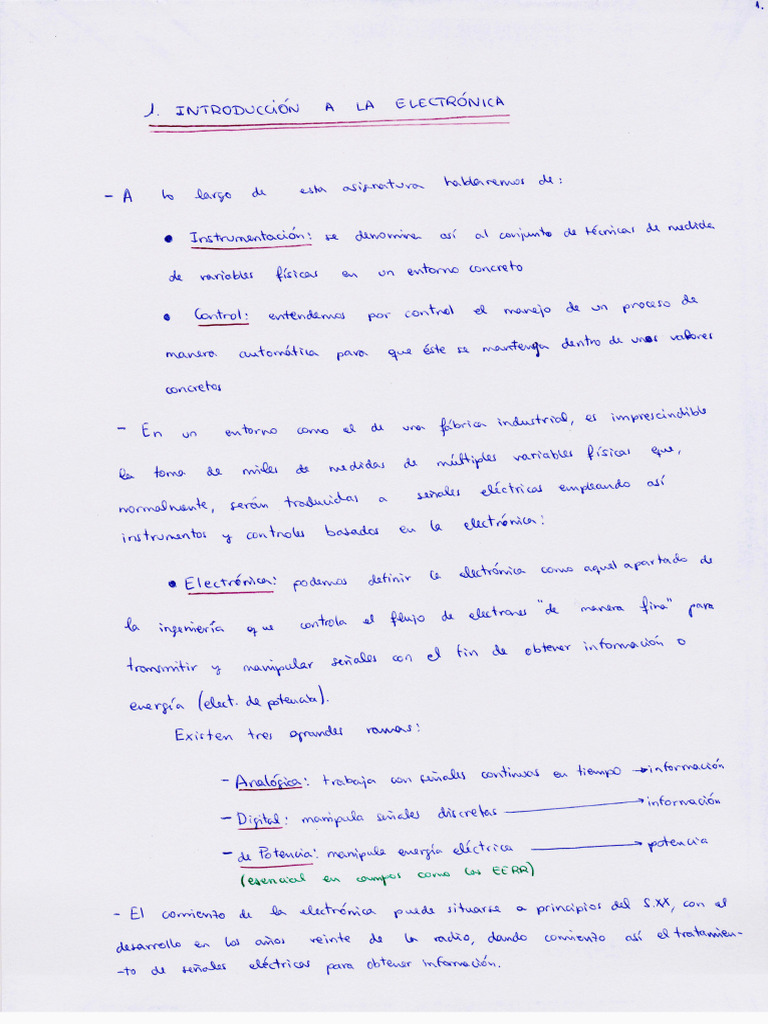 1.
1. INTRODUCCIÓN A LA ELECTRÓNICA
- A lo largo de esta asignatura hablaremos de:
• Instrumentación: se denomina así al conjunto de técnicas de medida
de variables físicas en un entorno concreto
• Control: entendemos por control el manejo de un proceso de
manera automática para que éste se mantenga dentro de unos valores
concretos
- En un entorno como el de una fábrica industrial, es imprescindible
la toma de miles de medidas de múltiples variables físicas que,
normalmente, serán traducidas a señales eléctricas empleando así
instrumentos y controles basados en la electrónica:
• Electrónica: podemos definir la electrónica como aquel apartado de
la ingeniería que controla el flujo de electrones "de manera fina" para
transmitir y manipular señales con el fin de obtener información o
energía (elect. de potencia).
Existen tres grandes ramas:
- Analógica: trabaja con señales continuas en tiempo → información
- Digital: manipula señales discretas → información
- de Potencia: manipula energía eléctrica → potencia
(esencial en campos como las EERR)
- El comienzo de la electrónica puede situarse a principios del S.XX, con el
desarrollo en los años veinte de la radio, dando comienzo así el tratamien-
-to de señales eléctricas para obtener información.